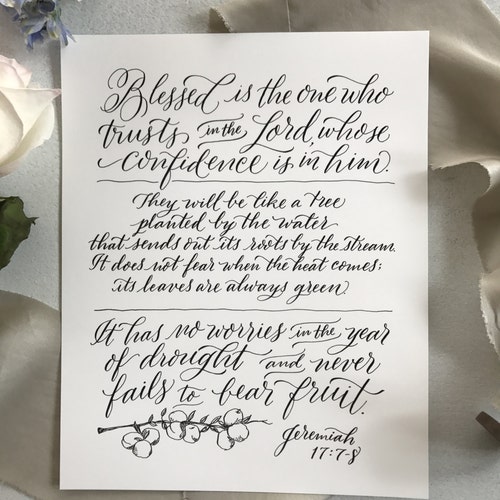 Blessed is the one who
trusts in the Lord, whose
confidence is in him.
They will be like a tree
planted by the water
that sends out its roots by the stream.
It does not fear when the heat comes;
its leaves are always green.
It has no worries in the year
of drought and never
fails to bear fruit.
Jeremiah
17:7-8